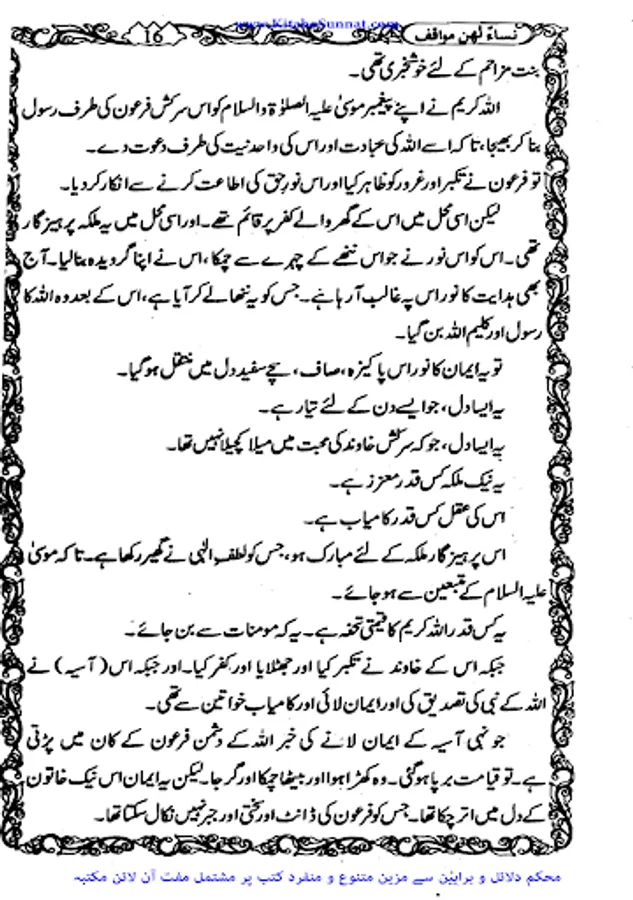 www.KitaboSunnat.com
نساءٌ لهن مواقف
16
بنت مزاحم کے لئے خوشخبری تھی۔
اللہ کریم نے اپنے پیغمبر موسیٰ علیہ الصلوٰۃ والسلام کو اس سرکش فرعون کی طرف رسول
بنا کر بھیجا، تاکہ اسے اللہ کی عبادت اور اس کی واحدنیت کی طرف دعوت دے۔
تو فرعون نے تکبر اور غرور کو ظاہر کیا اور اس نورِ حق کی اطاعت کرنے سے انکار کر دیا۔
لیکن اسی محل میں اس کے گھر والے کفر پر قائم تھے۔ اور اسی محل میں یہ ملکہ پرہیز گار
تھی۔ اس کو اس نور نے جو اس ننھے کے چہرے سے چمکا، اس نے اپنا گرویدہ بنا لیا۔ آج
بھی ہدایت کا نور اس پہ غالب آ رہا ہے۔ جس کو یہ ننھا لے کر آیا ہے، اس کے بعد وہ اللہ کا
رسول اور کلیم اللہ بن گیا۔
تو یہ ایمان کا نور اس پاکیزہ، صاف، سچے سفید دل میں منتقل ہو گیا۔
یہ ایسا دل، جو ایسے دن کے لئے تیار ہے۔
یہ ایسا دل، جو کہ سرکش خاوند کی محبت میں میلا کچیلا نہیں تھا۔
یہ نیک ملکہ کس قدر معزز ہے۔
اس کی عقل کس قدر کامیاب ہے۔
اس پرہیز گار ملکہ کے لئے مبارک ہو، جس کو لطفِ الٰہی نے گھیر رکھا ہے۔ تا کہ موسیٰ
علیہ السلام کے متبعین سے ہو جائے۔
یہ کس قدر اللہ کریم کا قیمتی تحفہ ہے۔ یہ کہ مومنات سے بن جائے۔
جبکہ اس کے خاوند نے تکبر کیا اور جھٹلایا اور کفر کیا۔ اور جبکہ اس (آسیہ) نے
اللہ کے نبی کی تصدیق کی اور ایمان لائی اور کامیاب خواتین سے تھی۔
جو نہی آسیہ کے ایمان لانے کی خبر اللہ کے دشمن فرعون کے کان میں پڑتی
ہے۔ تو قیامت برپا ہو گئی۔ وہ کھڑا ہوا اور بیٹھا چمکا اور گرجا۔ لیکن یہ ایمان اس نیک خاتون
کے دل میں اتر چکا تھا۔ جس کو فرعون کی ڈانٹ اور سختی اور جبر نہیں نکال سکتا تھا۔
محکم دلائل و براہین سے مزین متنوع و منفرد کتب پر مشتمل مفت آن لائن مکتبہ